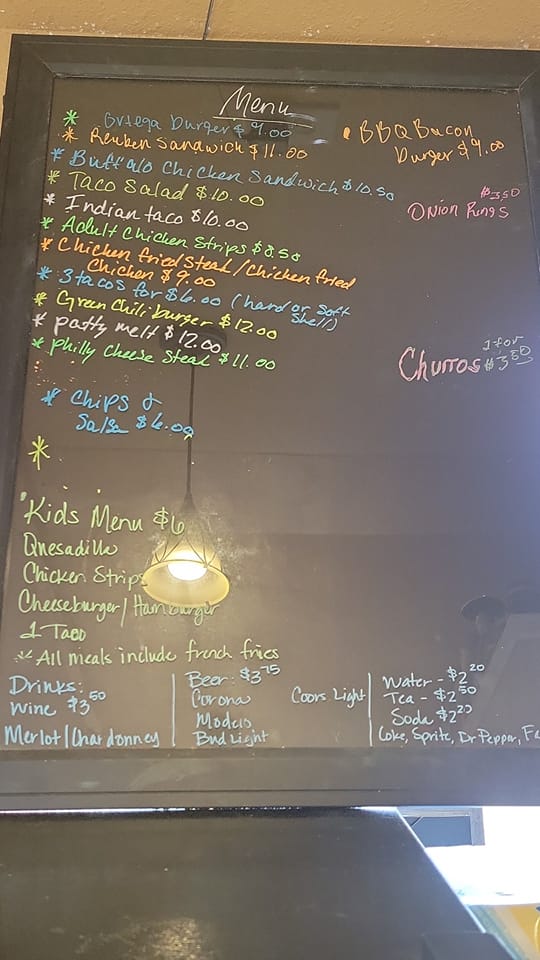 Menu
* Ortega Burger $9.00
* Reuben Sandwich $11.00
* Buffalo Chicken Sandwich $10.50
* Taco Salad $10.00
* Indian taco $10.00
* Adult Chicken Strips $8.50
* Chicken fried Steak/Chicken fried
Chicken $9.00
* 3 tacos for $6.00 (hard or soft
shell)
* Green Chili burger $12.00
* patty melt $12.00
* philly cheese steak $11.00
* Chips &
Salsa $6.00
*
BBQ Bacon
Burger $9.00
$3.50
Onion Rings
Churros 2 for
$3.50
Kids Menu $6
Quesadilla
Chicken Strips
Cheeseburger/Hamburger
1 Taco
* All meals include french fries
Drinks:
Wine $3.50
Merlot/Chardonney
Beer: $3.75
Corona
Modelo
Bud Light
Coors Light
Water - $2.20
Tea - $2.50
Soda $2.20
Coke, Sprite, Dr Pepper, Fa